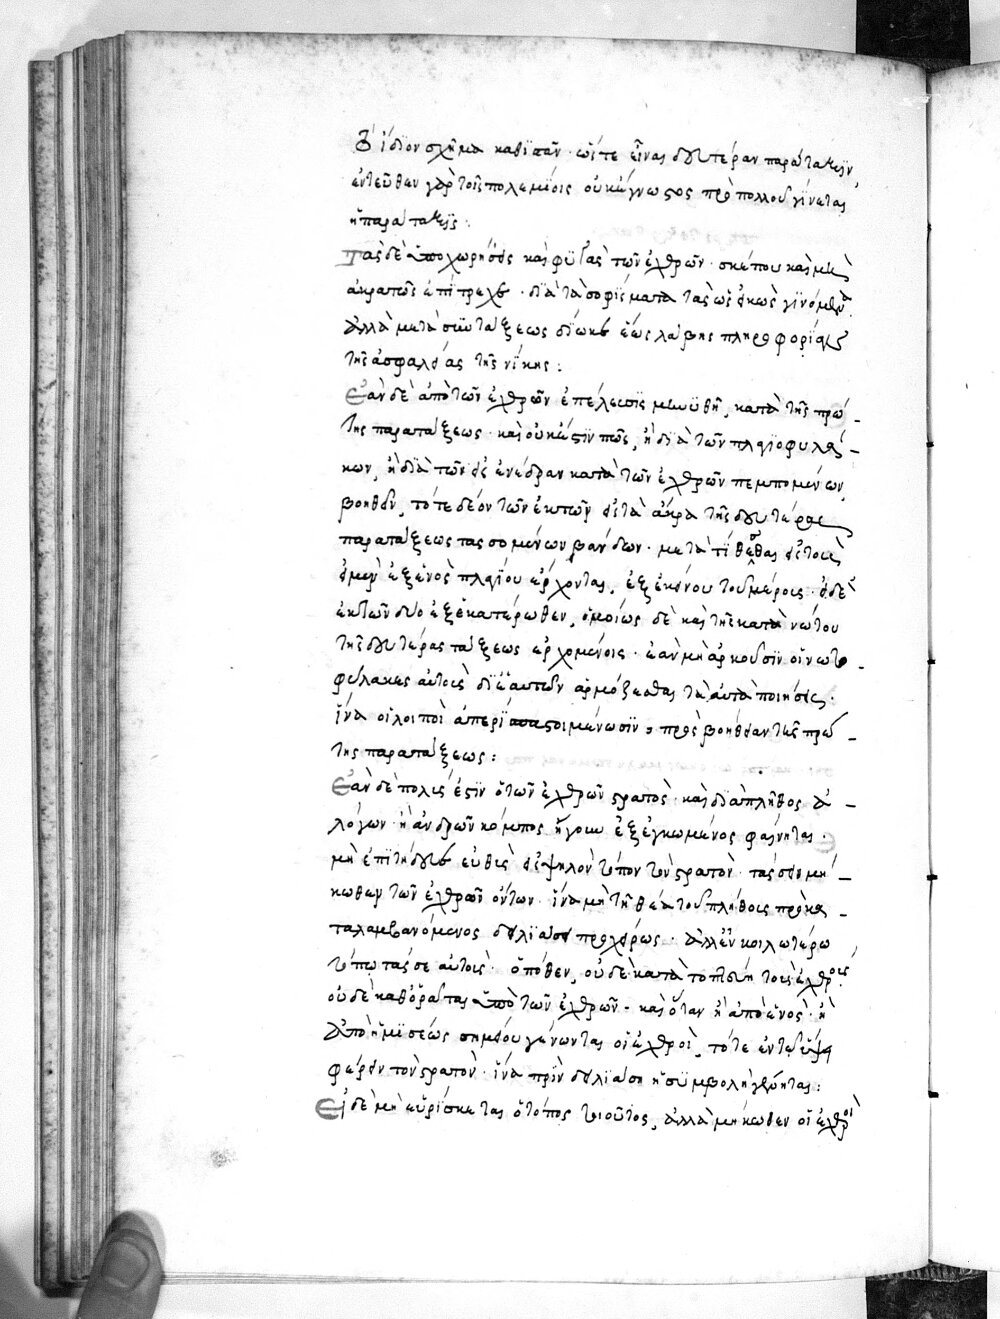 τὸ ἴδιον σχῆμα καθιστᾶν· ὥστε εἶναι δευτέραν παράταξιν,
ἐντεῦθεν γὰρ τοῖς πολεμίοις οὐκ ἄγνωστος πρὸ πολλοῦ γίνεται
ἡ παράταξις.
Τὰς δὲ ὑποχωρήσεις καὶ φυγὰς τῶν ἐχθρῶν· σκέπου καὶ μὴ
ἀκρατῶς ἐπίτρεχε· διὰ τὰ σοφίσματα τὰ ὡς εἰκὸς γινόμενα.
ἀλλὰ μετὰ συντάξεως δίωκε ἕως λάβῃς πληροφορίας
τῆς ἀσφαλείας τῆς νίκης:
Ἐὰν δὲ ἀπὸ τῶν ἐχθρῶν ἐπέλευσις μηνυθῇ, κατὰ τῆς πρώ-
της παρατάξεως· καὶ οὐκ ἔστιν πῶς, ἢ διὰ τῶν πλαγιοφυλά-
κων, ἢ διὰ τῶν εἰς ἐνέδραν κατὰ τῶν ἐχθρῶν πεμπομένων,
βοηθεῖν, τότε δέον τῶν ἐκ τῶν εἰς τὰ ἄκρα τῆς δευτέρας
παρατάξεως τασσομένων βάνδων· μετατίθεσθαι εἰς τοὺς
εἰ μὲν ἐξ ἑνὸς πλαγίου ἔρχονται, ἐξ ἐκείνου τοῦ μέρους· εἰ δὲ
ἐκ τῶν δύο ἐξ ἑκατέρωθεν, ὁμοίως δὲ καὶ τῆς κατὰ νώτου
τῆς δευτέρας τάξεως ἐρχομένοις· ἐὰν μὴ ἀρκοῦσιν οἱ νωτο-
φύλακες αὐτοὺς δι' ἑαυτῶν ἁρμόζεσθαι τὰ αὐτὰ ποιήσεις·
ἵνα οἱ λοιποὶ ἀπερίσπαστοι μένωσιν πρὸς βοήθειαν τῆς πρώ-
της παρατάξεως:
Ἐὰν δὲ πολύς ἐστιν ὁ τῶν ἐχθρῶν στρατὸς· καὶ διὰ πλῆθος ἀ-
λόγων· ἢ ἀνδρῶν κόμπος ἤγουν ἐξεγκωμένος φαίνηται·
μὴ ἐπιτήδευε εὐθὺς εἰς ὑψηλὸν τόπον τὸν στρατὸν· τάσσειν μή-
κωθεν τῶν ἐχθρῶν ὄντων· ἵνα μὴ τῇ θέᾳ τοῦ πλήθους προκα-
ταλαμβανόμενος δειλιάσῃ προχείρως· ἀλλ' ἐν κοιλωτέρω
τόπω τάσσε αὐτοὺς· ὁπόθεν, οὐδὲ κατὰ τὸ πρώην τοὺς ἐχθροὺς
οὐδὲ καθορᾶται ὑπὸ τῶν ἐχθρῶν· καὶ ὅταν ἢ ἀπὸ ἑνὸς· ἢ
ἀπὸ ἡμίσεως σημείου γένωνται οἱ ἐχθροὶ, τότε ἐν τῷ ὕψει
φέρειν τὸν στρατὸν· ἵνα πρὶν δειλιάσῃ ἡ συμβολὴ γένηται:
Εἰ δὲ μὴ εὑρίσκεται ὁ τόπος τοιοῦτος, ἀλλὰ μήκωθεν οἱ ἐχθροὶ